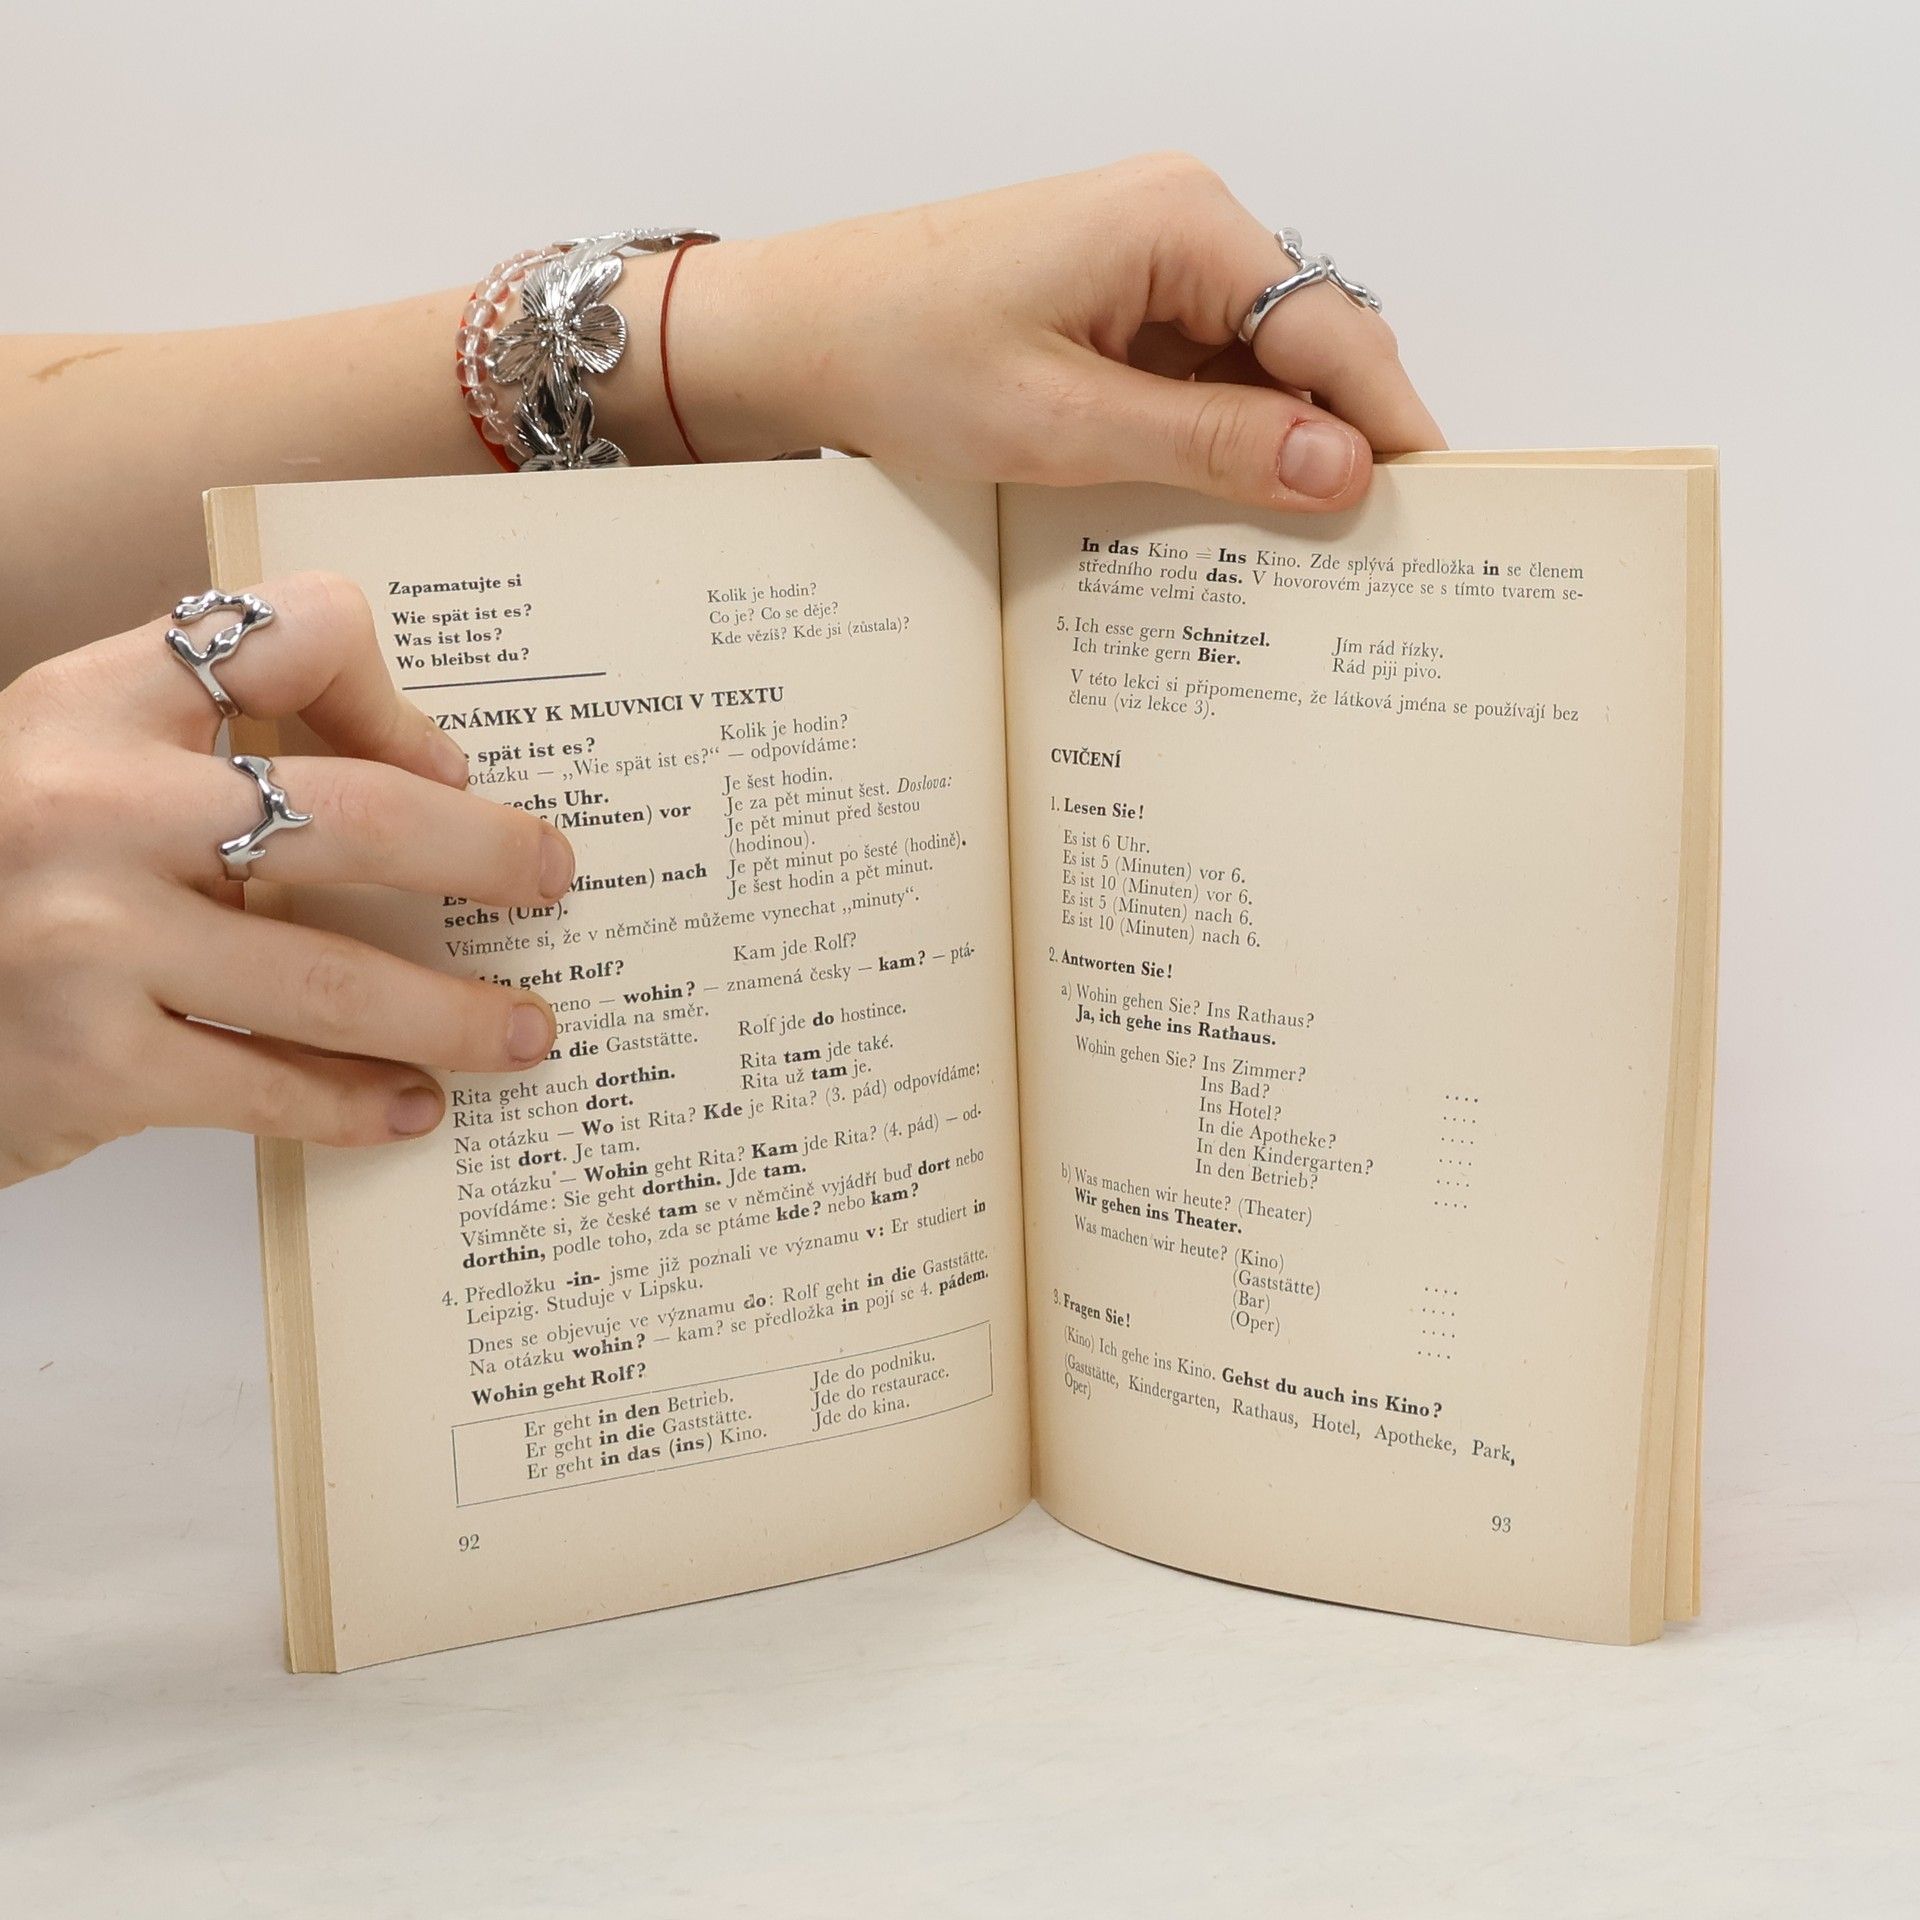 Zapamatujte si
Wie spät ist es? Kolik je hodin?
Was ist los? Co je? Co se děje?
Wo bleibst du? Kde vězíš? Kde jsi (zůstala)?
K MLUVNICI V TEXTU
spät ist es? Kolik je hodin?
otázku — „Wie spät ist es?“ — odpovídáme:
sechs Uhr. Je šest hodin.
(Minuten) vor Je za pět minut šest. Doslova:
Je pět minut před šestou
(hodinou).
Es (Minuten) nach Je pět minut po šesté (hodině).
sechs (Uhr). Je šest hodin a pět minut.
Všimněte si, že v němčině můžeme vynechat „minuty“.
geht Rolf? Kam jde Rolf?
— wohin? — znamená česky — kam? — ptá-
pravidla na směr.
die Gaststätte. Rolf jde do hostince.
Rita geht auch dorthin. Rita tam jde také.
Rita ist schon dort. Rita už tam je.
Na otázku — Wo ist Rita? Kde je Rita? (3. pád) odpovídáme:
Sie ist dort. Je tam.
Na otázku — Wohin geht Rita? Kam jde Rita? (4. pád) — od-
povídáme: Sie geht dorthin. Jde tam.
Všimněte si, že české tam se v němčině vyjádří buď dort nebo
dorthin, podle toho, zda se ptáme kde? nebo kam?
4. Předložku -in- jsme již poznali ve významu v: Er studiert in
Leipzig. Studuje v Lipsku.
Dnes se objevuje ve významu do: Rolf geht in die Gaststätte.
Na otázku wohin? — kam? se předložka in pojí se 4. pádem.
Wohin geht Rolf?
Er geht in den Betrieb. Jde do podniku.
Er geht in die Gaststätte. Jde do restaurace.
Er geht in das (ins) Kino. Jde do kina.
92
In das Kino = Ins Kino. Zde splývá předložka in se členem
středního rodu das. V hovorovém jazyce se s tímto tvarem se-
tkáváme velmi často.
5. Ich esse gern Schnitzel. Jím rád řízky.
Ich trinke gern Bier. Rád piji pivo.
V této lekci si připomeneme, že látková jména se používají bez
členu (viz lekce 3).
CVIČENÍ
1. Lesen Sie!
Es ist 6 Uhr.
Es ist 5 (Minuten) vor 6.
Es ist 10 (Minuten) vor 6.
Es ist 5 (Minuten) nach 6.
Es ist 10 (Minuten) nach 6.
2. Antworten Sie!
a) Wohin gehen Sie? Ins Rathaus?
Ja, ich gehe ins Rathaus.
Wohin gehen Sie? Ins Zimmer? ....
Ins Bad? ....
Ins Hotel? ....
In die Apotheke? ....
In den Kindergarten? ....
In den Betrieb? ....
b) Was machen wir heute? (Theater)
Wir gehen ins Theater.
Was machen wir heute? (Kino) ....
(Gaststätte) ....
(Bar) ....
(Oper) ....
3. Fragen Sie!
(Kino) Ich gehe ins Kino. Gehst du auch ins Kino?
(Gaststätte, Kindergarten, Rathaus, Hotel, Apotheke, Park,
Oper)
93